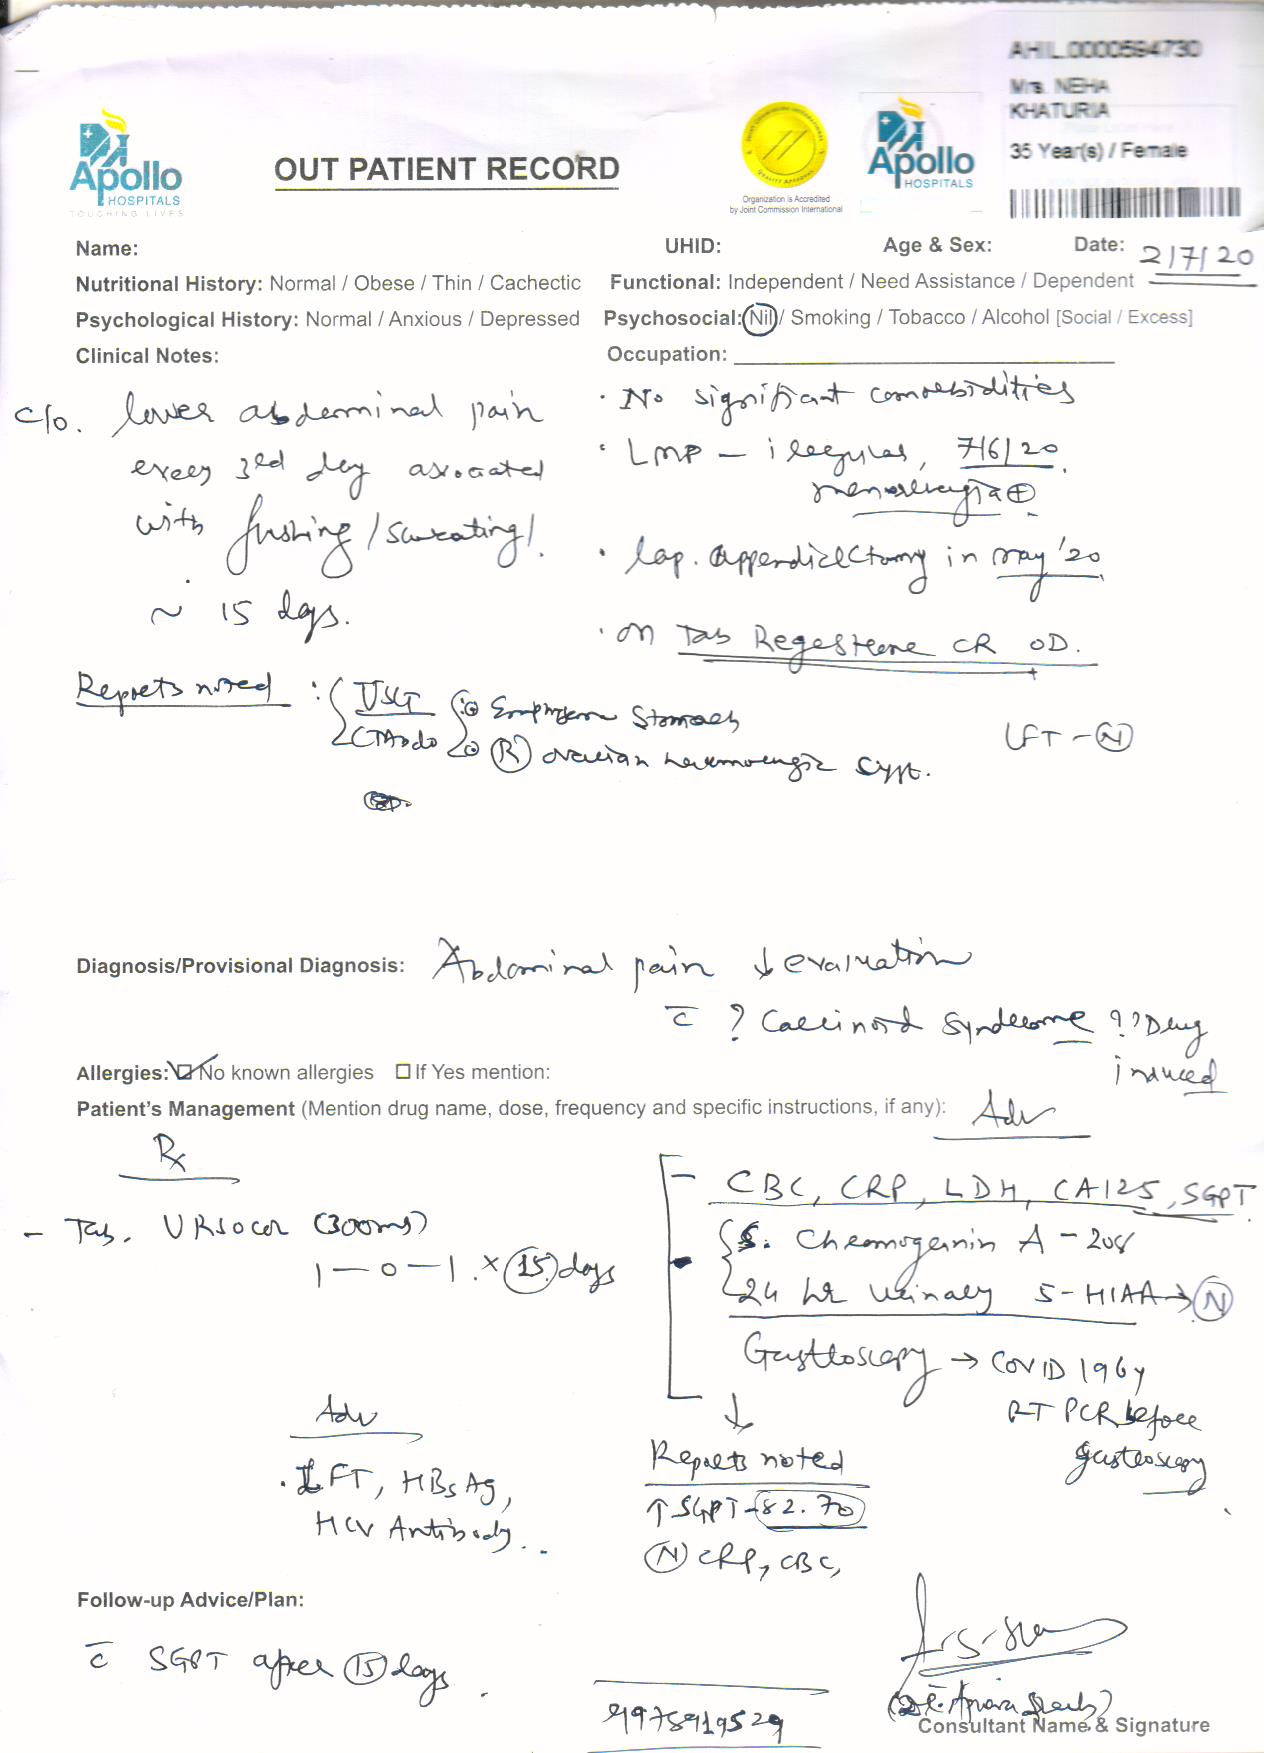 AHIL.0000594730
Mrs. NEHA
KHATURIA
35 Year(s) / Female
Apollo
HOSPITALS
TOUCHING LIVES
OUT PATIENT RECORD
Organization is Accredited
by Joint Commission International
Apollo
HOSPITALS
Name: UHID: Age & Sex: Date: 2/7/20
Nutritional History: Normal / Obese / Thin / Cachectic Functional: Independent / Need Assistance / Dependent
Psychological History: Normal / Anxious / Depressed Psychosocial: Nil / Smoking / Tobacco / Alcohol [Social / Excess]
Clinical Notes: Occupation:
c/o. lower abdominal pain
every 3rd day associated
with flushing / sweating /.
~ 15 days.
· No significant comorbidities
· LMP – irregular, 7/6/20
menorrhagia ⊕
· lap. appendicectomy in may '20
· on Tab Regestrone CR OD.
Reports noted : USG
CTAbdo
Stomach
(R) ovarian haemorrhagic cyst.
LFT – (N)
Diagnosis/Provisional Diagnosis: Abdominal pain ↓ evaluation
c̅ ? Carcinoid Syndrome ?? Drug
induced
Allergies: ☑ No known allergies ☐ If Yes mention:
Patient's Management (Mention drug name, dose, frequency and specific instructions, if any): Adv
Rx
– Tab. URSOCOL (300mg)
1 – 0 – 1 . × (15) days
– CBC, CRP, LDH, CA125, SGPT
S. Chromogranin A – 208
24 hr Urinary 5-HIAA → (N)
Gastroscopy → COVID 19 by
RT PCR before
gastroscopy
↓
Reports noted
↑ SGPT – 82.70
(N) CRP, CBC,
Adv
. LFT, HBsAg,
HCV Antibody..
Follow-up Advice/Plan:
c̅ SGPT after (15) days.
9978919529
(Dr. Apurva Shah)
Consultant Name & Signature